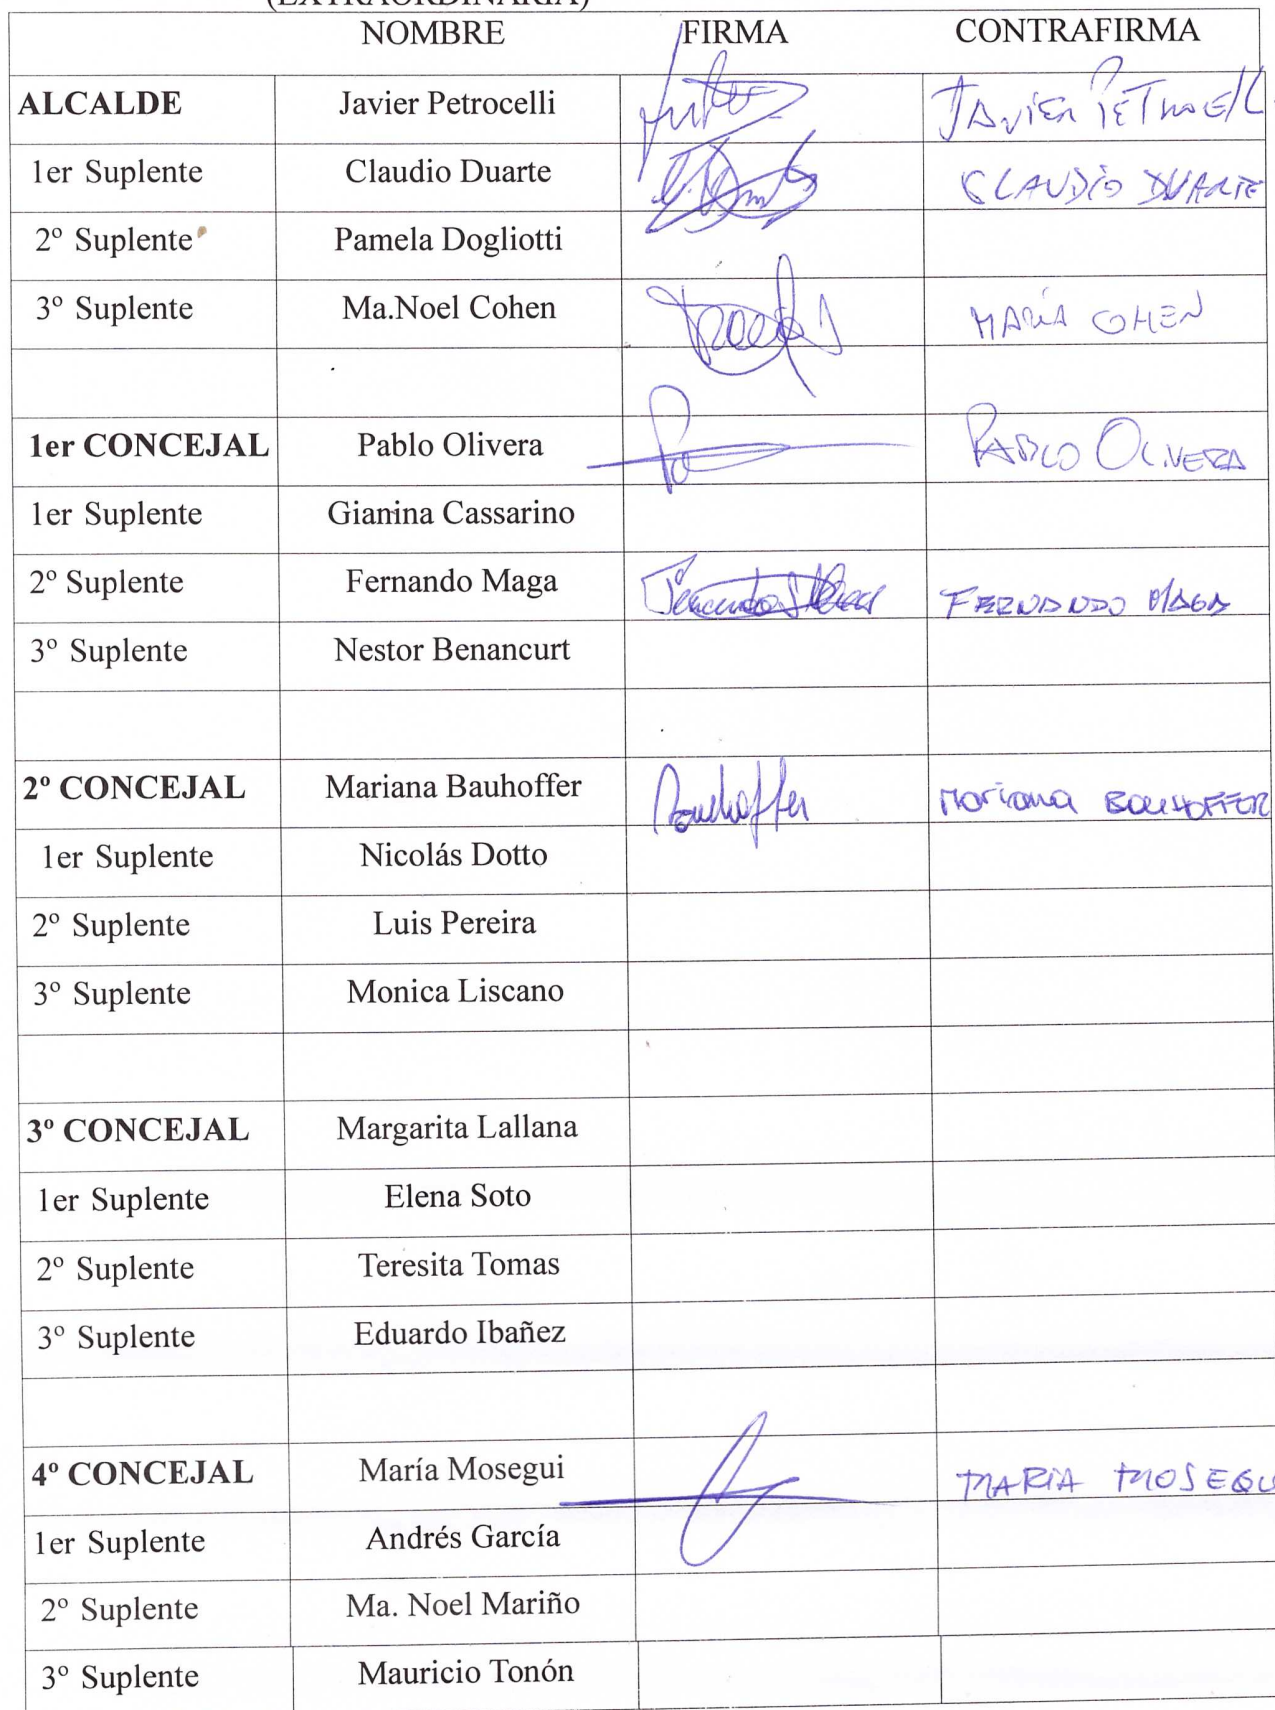 (EXTRAORDINARIA)
NOMBRE FIRMA CONTRAFIRMA
ALCALDE Javier Petrocelli JAViER PETROCELL
1er Suplente Claudio Duarte CLAUDiO DUARTE
2º Suplente Pamela Dogliotti
3º Suplente Ma.Noel Cohen MARÍA COHEN
1er CONCEJAL Pablo Olivera PABLO OLIVERA
1er Suplente Gianina Cassarino
2º Suplente Fernando Maga FERNANDO MAGA
3º Suplente Nestor Benancurt
2º CONCEJAL Mariana Bauhoffer Bauhoffer Mariana BAUHOFFER
1er Suplente Nicolás Dotto
2º Suplente Luis Pereira
3º Suplente Monica Liscano
3º CONCEJAL Margarita Lallana
1er Suplente Elena Soto
2º Suplente Teresita Tomas
3º Suplente Eduardo Ibañez
4º CONCEJAL María Mosegui MARIA MOSEGU
1er Suplente Andrés García
2º Suplente Ma. Noel Mariño
3º Suplente Mauricio Tonón